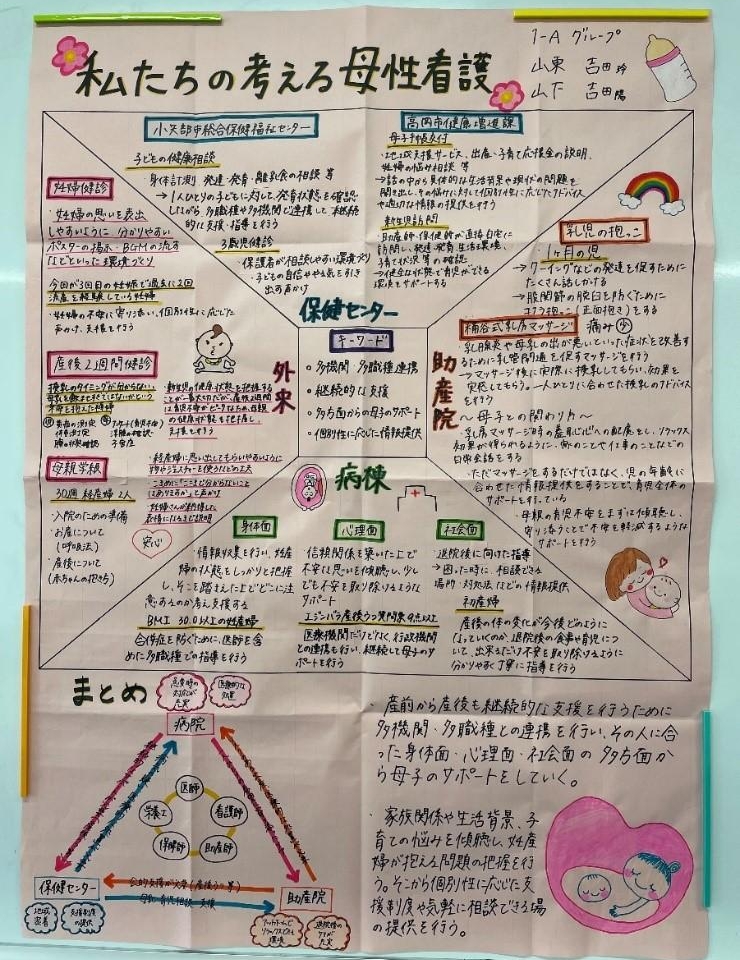 私たちの考える母性看護
1-A グループ
山東 吉田
山下 吉田
小矢部市総合保健福祉センター
子どもの健康相談
・身体計測 発達・発育・離乳食の相談 等
→1人ひとりの子どもに対して、発育状態を確認
しながら多職種や多機関で連携して、継続
的な支援・指導を行う
3歳児健診
・保護者が相談しやすい環境づくり
・子どもの自信ややる気を引き
出す声かけ
高岡市健康増進課
母子手帳交付
・地域支援サービス、出産・子育て応援金の説明、
妊婦の悩み相談 等
→話の中から具体的な生活背景や現状の問題を
聞き出し、その悩みに対して個別性に応じたアドバイス
や適切な情報の提供を行う
新生児訪問
・助産師・保健師が直接自宅に
訪問し、発達・発育・生活環境、
子育て状況 等の確認
→健全な状態で育児ができる
環境をサポートする
保健センター
妊婦健診
・妊婦の思いを表出
しやすいように 分かりやすい
ポスターの掲示・BGMの流す
などといった環境づくり
今回が3回目の妊娠で過去に2回
流産を経験している妊婦
・妊婦の不安に寄り添い、個別性に応じた
声かけ、支援を行う
産後2週間健診
授乳のタイミングが分からない
・新生児の健康状態を把握する
母親学級
30週 経産婦 2人
・入院のための準備
・お産について
(呼吸法)
・産後について
(赤ちゃんの抱き方)
・経産婦に思い出してもらいやすいように
安心
外来
キーワード
・多機関・多職種連携
・継続的な支援
・多方面からの母子のサポート
・個別性に応じた情報提供
助産院
乳児の抱っこ
1ヶ月の児
→クーイングなどの発達を促すために
たくさん話しかける
→股関節の脱臼を防ぐために
コアラ抱っこ(正面抱き)をする
桶谷式乳房マッサージ 痛み少
・乳腺炎や母乳の出が悪いといった症状を改善す
るために乳管開通を促すマッサージを行う
→マッサージ後に実際に授乳してもらい、効果を
実感してもらう。一人ひとりに合わせた授乳のアドバイス
を行う
～母子との関わり方～
・乳房マッサージ時の羞恥心への配慮をし、リラックス
効果が得られるように、家のことや仕事のことなどの
日常会話をする
・ただマッサージをするだけではなく、児の年齢に
合わせた情報提供をすることで、育児全体の
サポートを行っている
・母親の育児不安をまずは傾聴し、寄
り添うことで不安を軽減するような
サポートを行う
病棟
身体面
・情報収集を行い、妊産
婦の状態をしっかりと把握
し、そこを踏まえた上でどこに注
意するのか考え支援する
BMI 30.0以上の妊産婦
合併症を防ぐために、医師を含
めた多職種での指導を行う
心理面
・信頼関係を築いた上で
不安な思いを傾聴し、少し
でも不安を取り除けるような
サポート
エジンバラ産後うつ質問票 9点以上
医療機関だけでなく、行政機関
との連携も行い、継続して母子のサ
ポートを行う
社会面
退院後に向けた指導
→困った時に、相談できる
場所・対処法などの情報提供
初産婦
産後の体の変化が今後どのよう
になっていくのか、退院後の食事や育児につ
いて、出来るだけ不安を取り除けるように
分かりやすく丁寧に指導を行う
まとめ
病院
医師
栄養士
看護師
保健師
助産師
保健センター
助産院
地域
密着
支援制度
の提供
・産前から産後も継続的な支援を行うために
多機関・多職種との連携を行い、その人に合
った身体面・心理面・社会面の多方面か
ら母子のサポートをしていく。
・家族関係や生活背景、子
育ての悩みを傾聴し、妊産
婦が抱える問題の把握を行
う。そこから個別性に応じた支
援制度や気軽に相談できる場
の提供を行う。